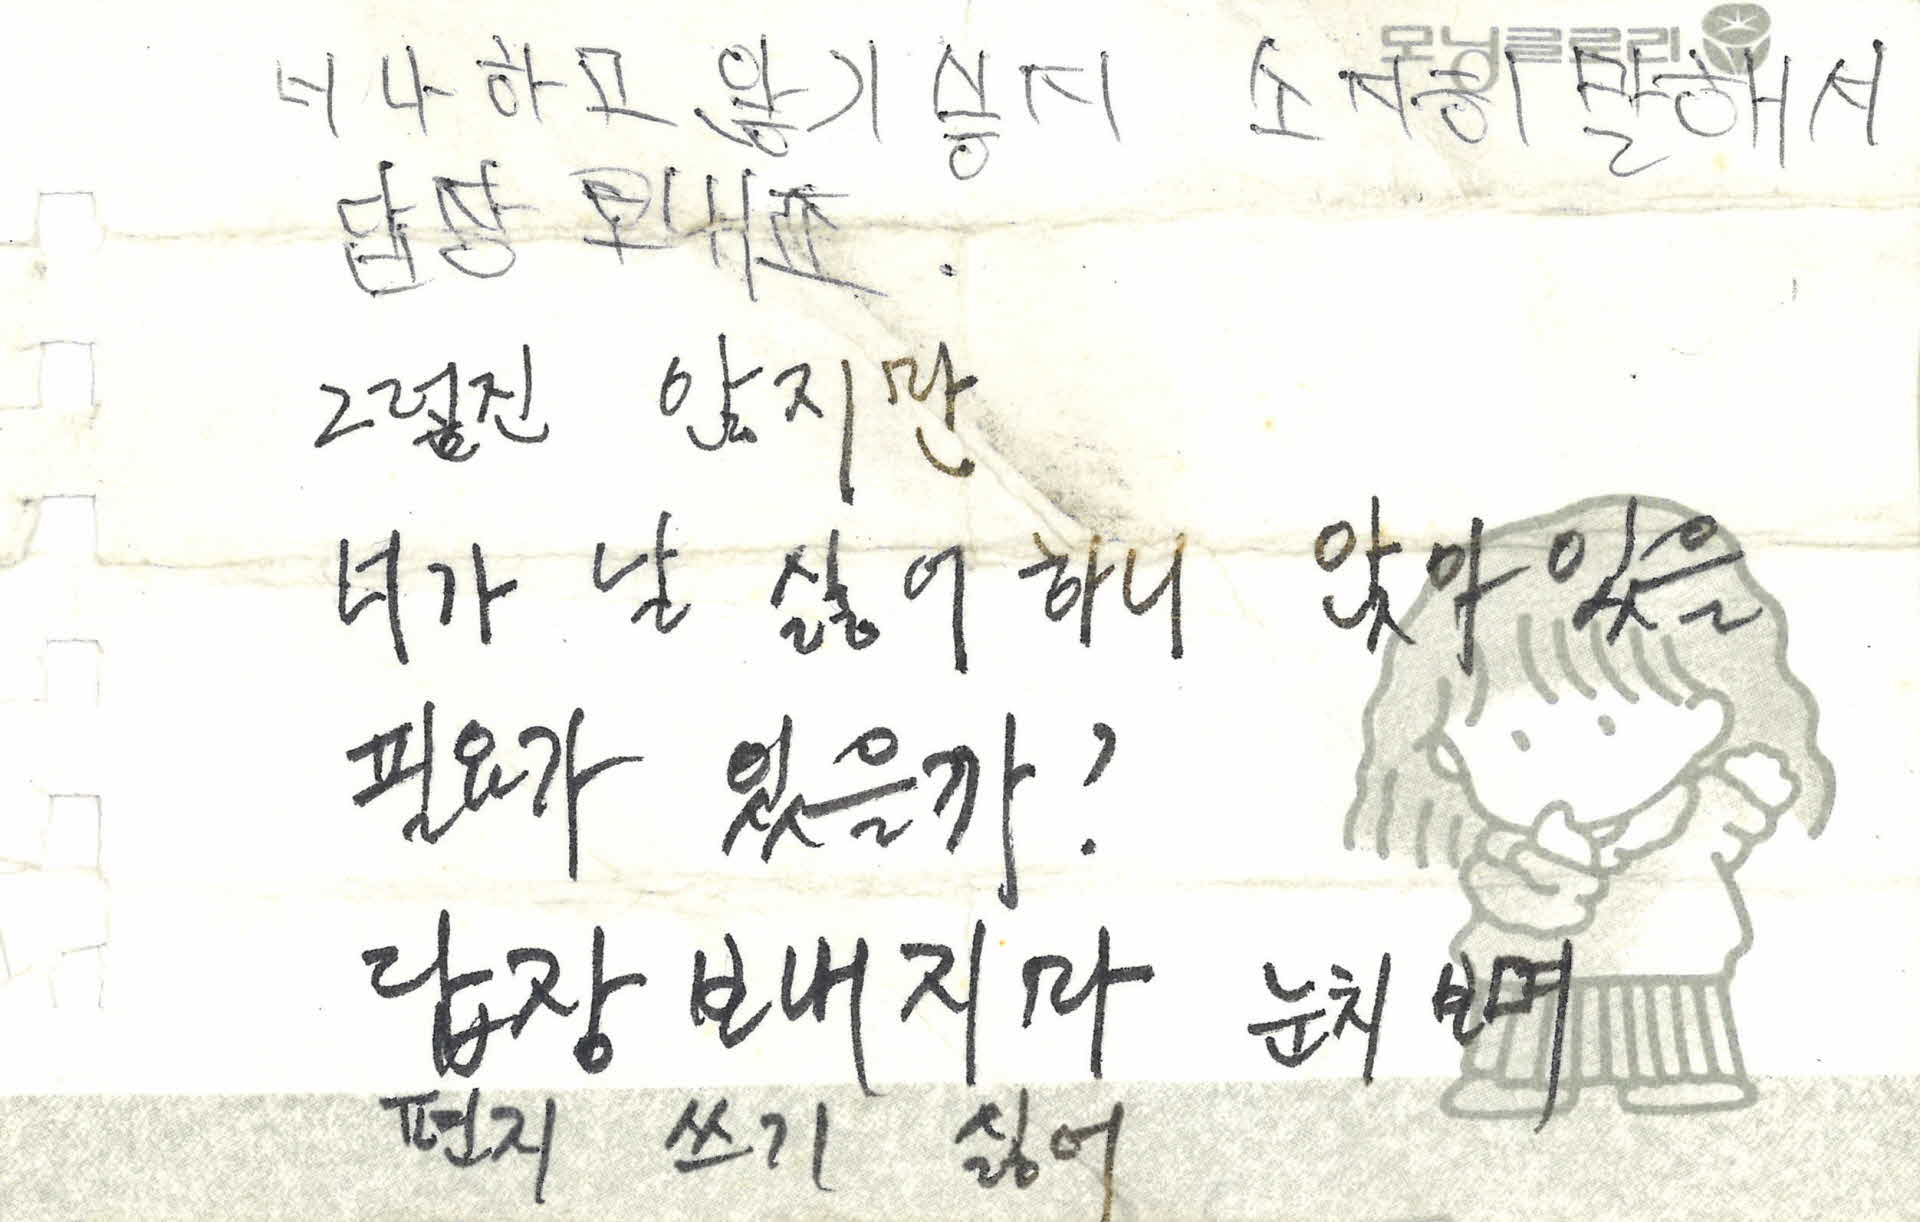 모닝글로리
너 나 하고 않기 싫지 소지히 말해서
답장 보내죠.
그렇진 않지만
너가 날 싫어하니 앚아 있을
필요가 있을까?
답장 보내지마 눈치 보며
편지 쓰기 싫어